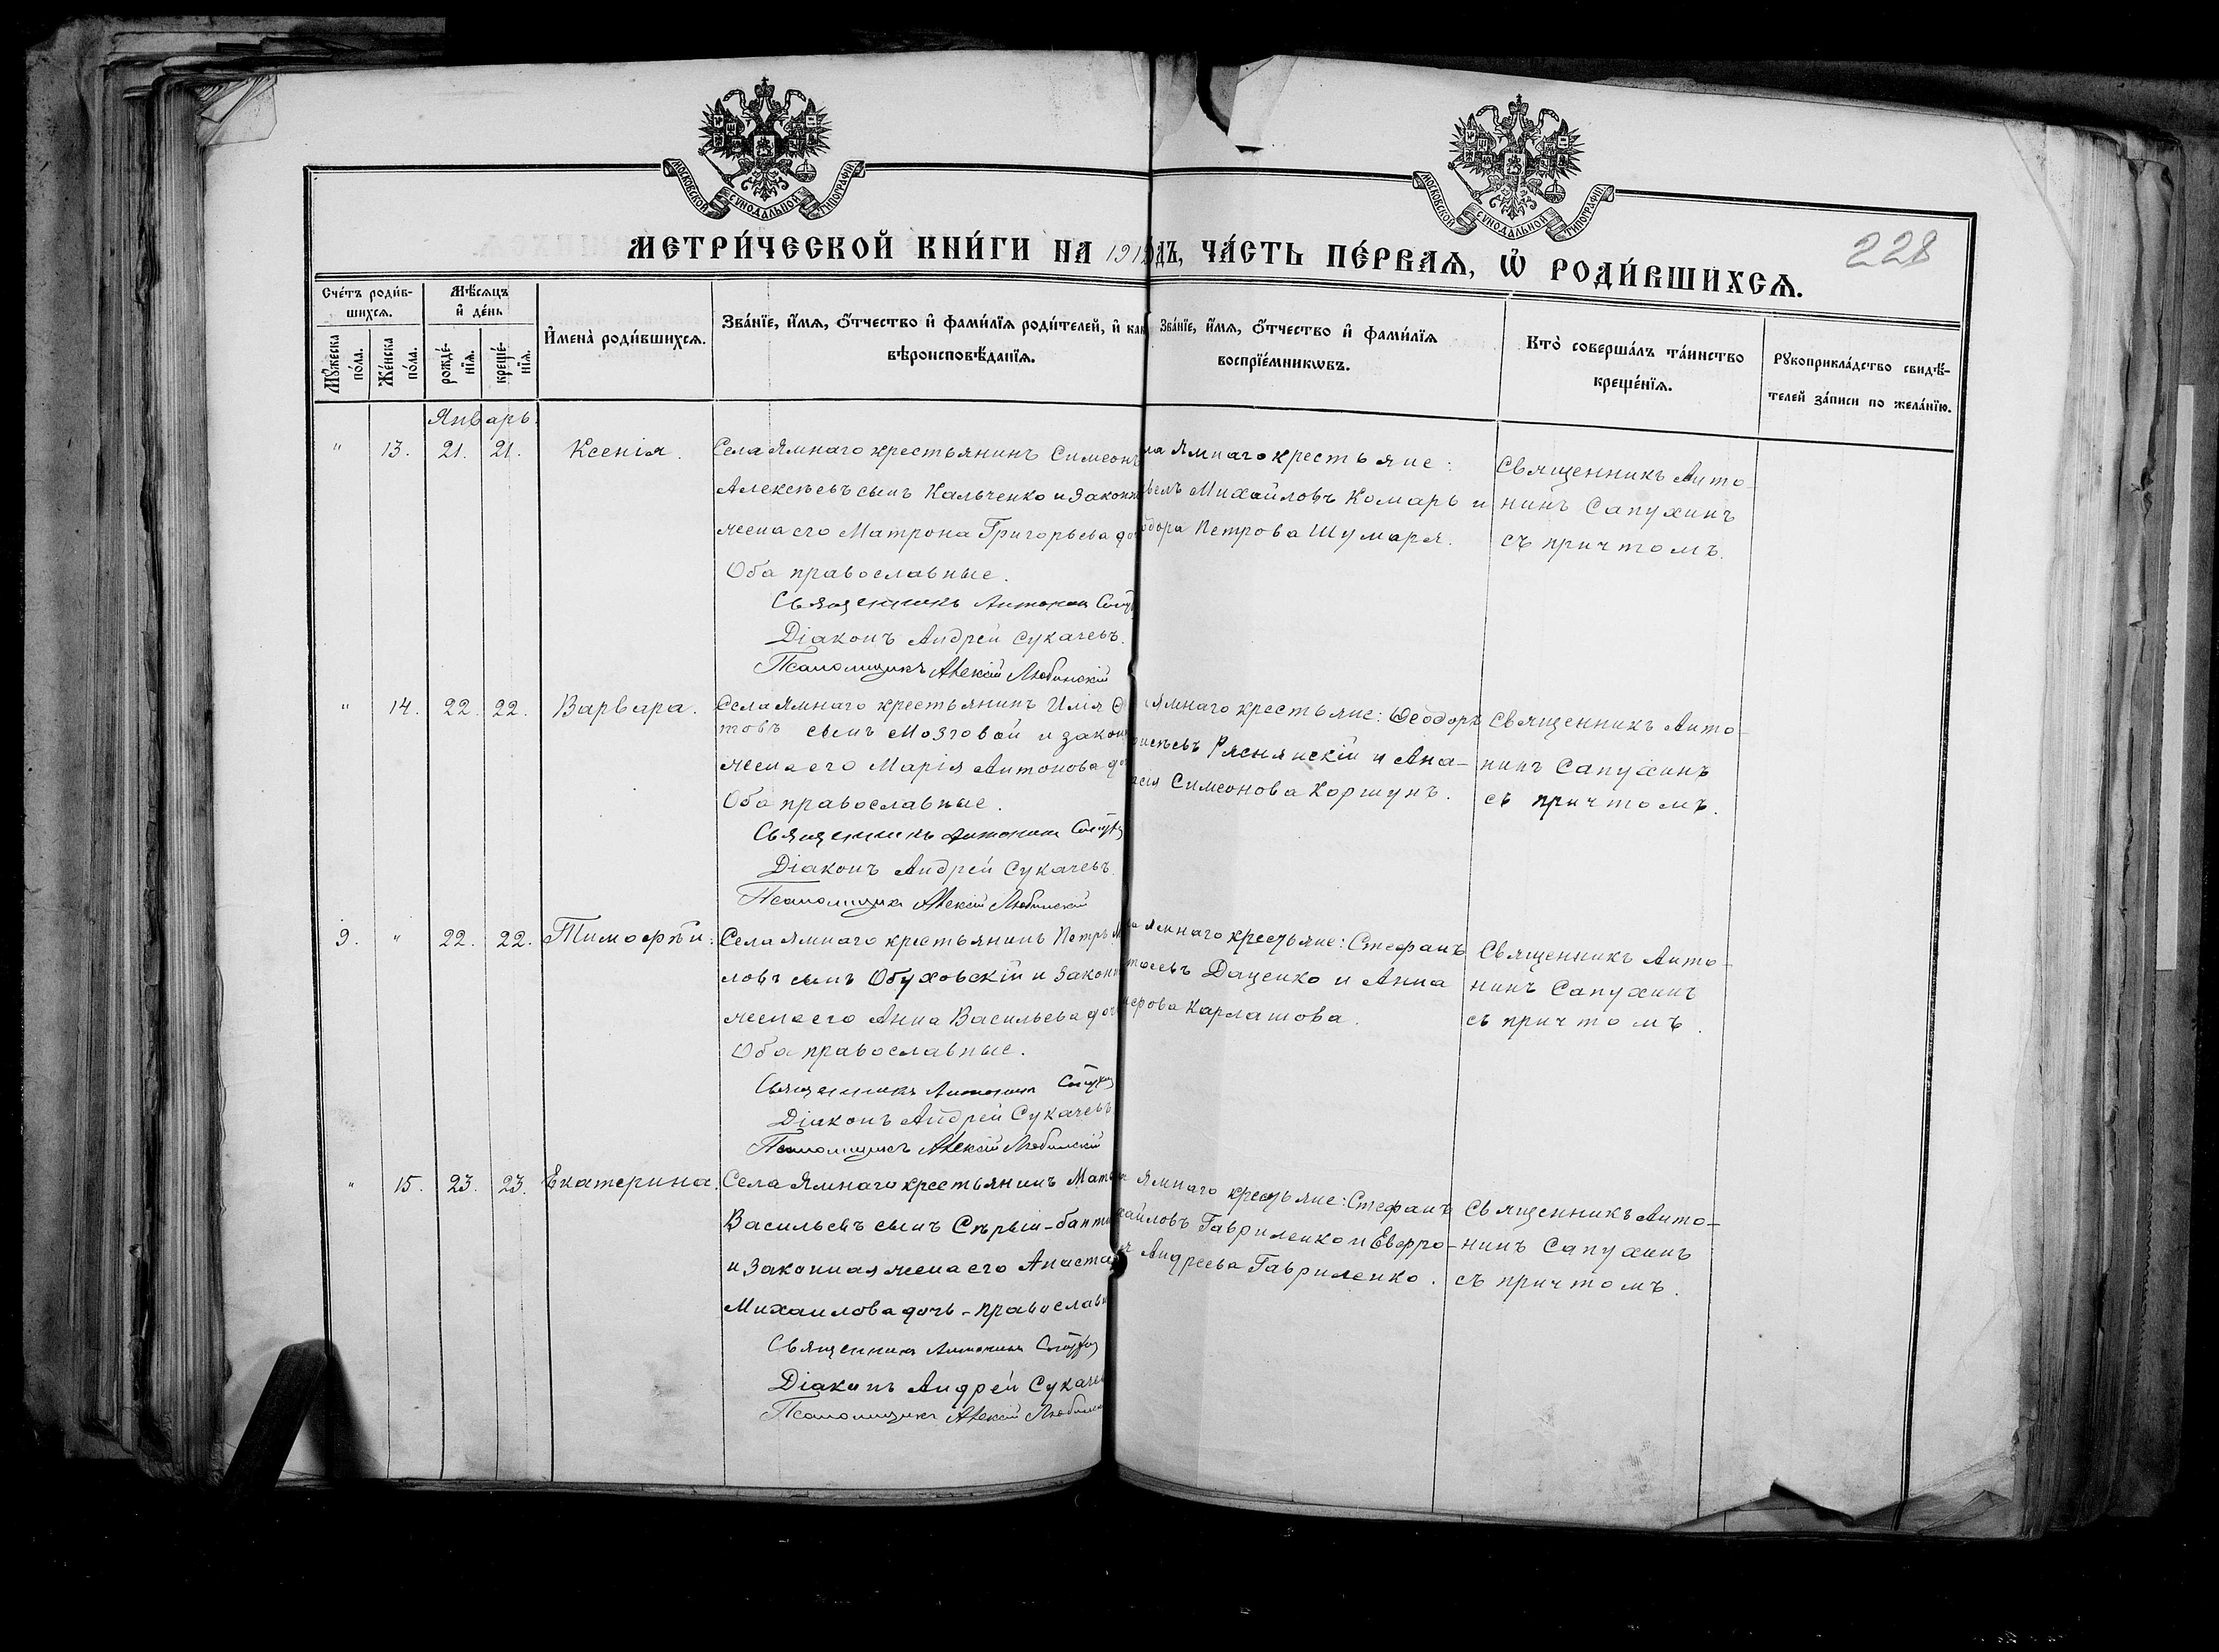 МОСКОВСКОЙ СѴНОДАЛЬНОЙ ТИПОГРАФІИ
МОСКОВСКОЙ СѴНОДАЛЬНОЙ ТИПОГРАФІИ
228
МЕТРИ́ЧЕСКОЙ КНИ́ГИ НА 191 ДЪ, ЧА́СТЬ ПЕ́РВАѦ, Ѽ РОДИ́ВШИХСѦ.
Сче́тъ роди́в-
шихсѧ.
Мꙋ́жеска по́ла.
Же́нска по́ла.
Мѣ́сѧцъ
и҆ де́нь
рожде́-
нїѧ.
креще́-
нїѧ.
И҆мена̀ роди́вшихсѧ.
Зва́нїе, и҆́мѧ, ѻ҆́тчество и҆ фами́лїѧ роди́телей, и҆ как
вѣроисповѣ́данїѧ.
Зва́нїе, и҆́мѧ, ѻ҆́тчество и҆ фами́лїѧ
воспрїе́мникѡвъ.
Кто̀ соверша́лъ та́инство
креще́нїѧ.
Рꙋкоприкла́дство свидѣ́-
телей за́писи по жела́нїю.
Январь.
" 13. 21. 21. Ксенія.
Села Ямнаго крестьянинъ Симеонъ
Алексѣевъ сынъ Кальченко и законн
жена его Матрона Григорьева до
Оба православные.
Священникъ Антонин
Діаконъ Андрей Сукачевъ.
Псаломщикъ Алексій Любинскій
ла Ямнаго крестьяне:
велъ Михайловъ Комарь и
одора Петрова Шумаря.
Священникъ Анто-
нинъ Сапухинъ
съ причтомъ.
" 14. 22. 22. Варвара.
Села Ямнаго крестьянинъ Илія Ѳ
товъ сынъ Мозговой и закон
жена его Марія Антонова до
Оба православные.
Священникъ Антонин
Діаконъ Андрей Сукачевъ
Псаломщикъ Алексій Любинскій
Ямнаго крестьяне: Ѳеодоръ
Ряснянскій и Ана-
асія Симеонова Коршунъ.
Священникъ Анто-
нинъ Сапухинъ
съ причтомъ.
9. " 22. 22. Тимоѳей:
Села Ямнаго крестьянинъ Петръ М
ловъ сынъ Обуховскій и законн
жена его Анна Васильева доч
Оба православные.
Священникъ Антонин
Діаконъ Андрей Сукачевъ
Псаломщикъ Алексій Любинскій
Ямнаго крестьяне: Стефанъ
Даценко и Анна
Карлашова.
Священникъ Анто-
нинъ Сапухинъ
съ причтомъ.
" 15. 23. 23. Екатерина.
Села Ямнаго крестьянинъ Матв
Васильевъ сынъ Сѣрый-бапти
и законная жена его Анаста
Михаилова дочь - православн
Священникъ Антонин
Діаконъ Андрей Сукаче
Псаломщикъ Алексій Любинс
Ямнаго крестьяне: Стефанъ
хайловъ Гавриленко и Евфро-
Андреева Гавриленко.
Священникъ Анто-
нинъ Сапухинъ
съ причтомъ.